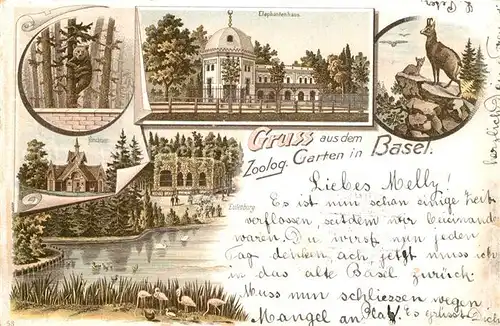 Elephantenhaus
Gruss aus dem
Zoolog. Garten in Basel.
Eulenburg
Liebes Melly!
Es ist nun schon einige Zeit
verflossen, seitdem wir beieinand
waren. Du wirst nun jeden
Tag denken, ach, jetzt muss ich
in das alte Basel zurück.
Muss nun schliessen wegen
Mangel an Platz. Es grüsst Dich